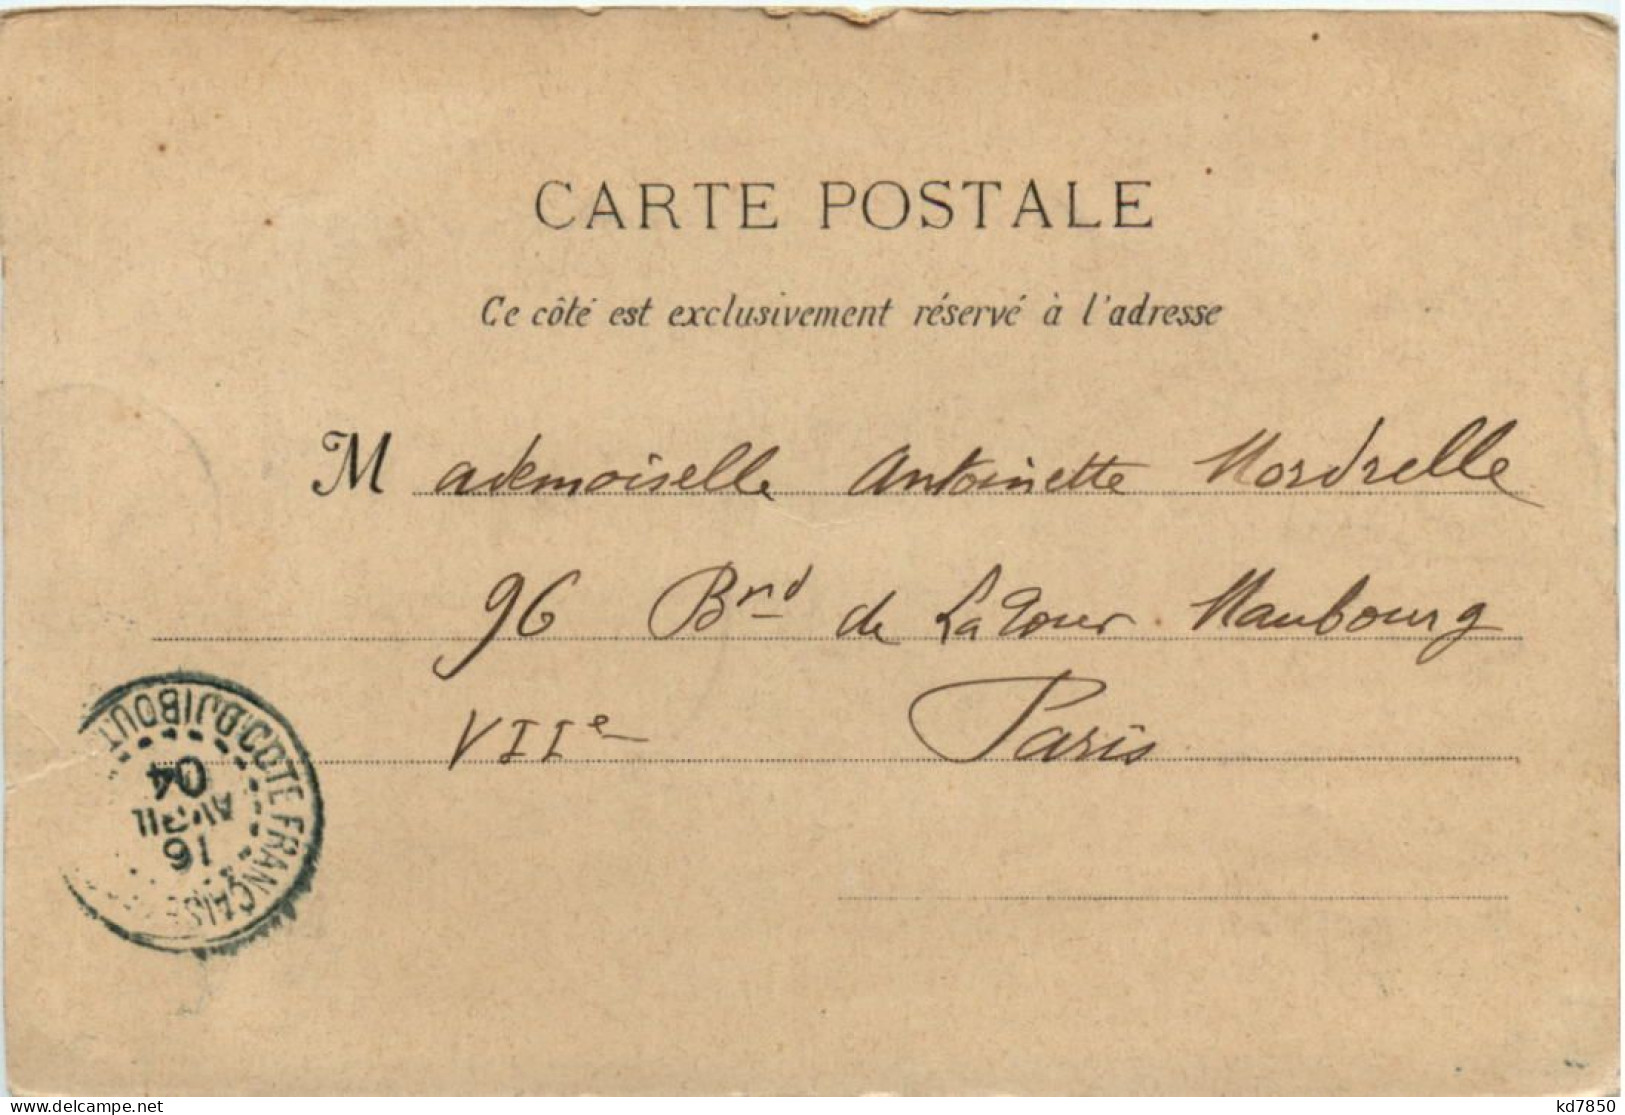 CARTE POSTALE
Ce côté est exclusivement réservé à l'adresse
Mademoiselle Antoinette Mordrelle
96 Brd de La Tour Maubourg
VIIe Paris
DJIBOUTI COTE FRANÇAISE
16
AVRIL
04
delcampe.net
kd7850